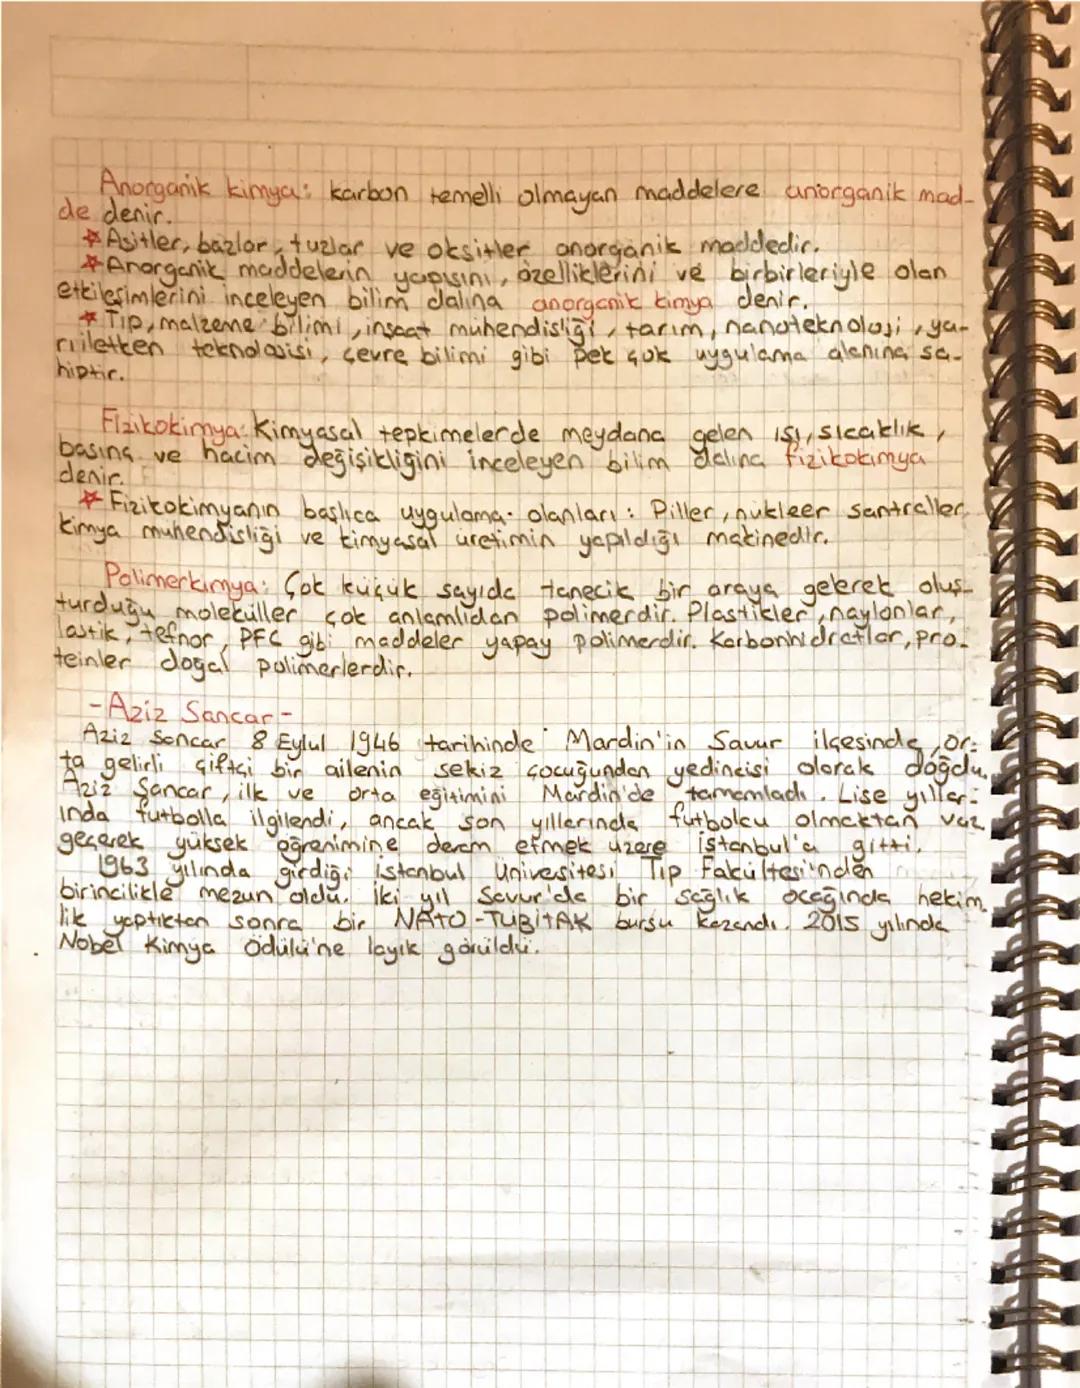 Anorganik kimya: karbon temelli olmayan maddelere anorganik mad-
de denir.
☆Asitler, bazlar, tuzlar ve oksitler anorganik maddedir.
☆Anorganik maddelerin yapısını, özelliklerini ve birbirleriyle olan
etkileşimlerini inceleyen bilim dalına anorganik kimya denir.
☆Tıp, malzeme bilimi, inşaat mühendisliği, tarım, nanoteknoloji, ya-
rıiletken teknolojisi, çevre bilimi gibi pek çok uygulama alanına sa-
hiptir.
Fizikokimya: Kimyasal tepkimelerde meydana gelen ısı, sıcaklık,
basınç ve hacim değişikliğini inceleyen bilim dalına fizikokimya
denir.
☆Fizikokimyanın başlıca uygulama alanları: Piller, nükleer santraller,
kimya mühendisliği ve kimyasal üretimin yapıldığı makinedir.
Polimerkimya: Çok küçük sayıda tanecik bir araya gelerek oluş-
turduğu moleküller çok anlamlıdan polimerdir. Plastikler, naylonlar,
lastik, tefnor, PFC gibi maddeler yapay polimerdir. Karbonhidratlar, pro-
teinler doğal polimerlerdir.
-Aziz Sancar-
Aziz Sancar 8 Eylül 1946 tarihinde Mardin'in Savur ilçesinde, or-
ta gelirli çiftçi bir ailenin sekiz çocuğundan yedincisi olarak doğdu.
Aziz Sancar, ilk ve orta eğitimini Mardin'de tamamladı. Lise yılları-
ında futbolla ilgilendi, ancak son yıllarında futbolcu olmaktan vaz
geçerek yüksek öğrenimine devam etmek üzere İstanbul'a gitti.
1963 yılında girdiği İstanbul Üniversitesi Tıp Fakültesi'nden
birincilikle mezun oldu. İki yıl Savur'da bir sağlık ocağında hekim
lik yaptıktan sonra bir NATO-TÜBİTAK bursu kazandı. 2015 yılında
Nobel Kimya Ödülü'ne layık görüldü.